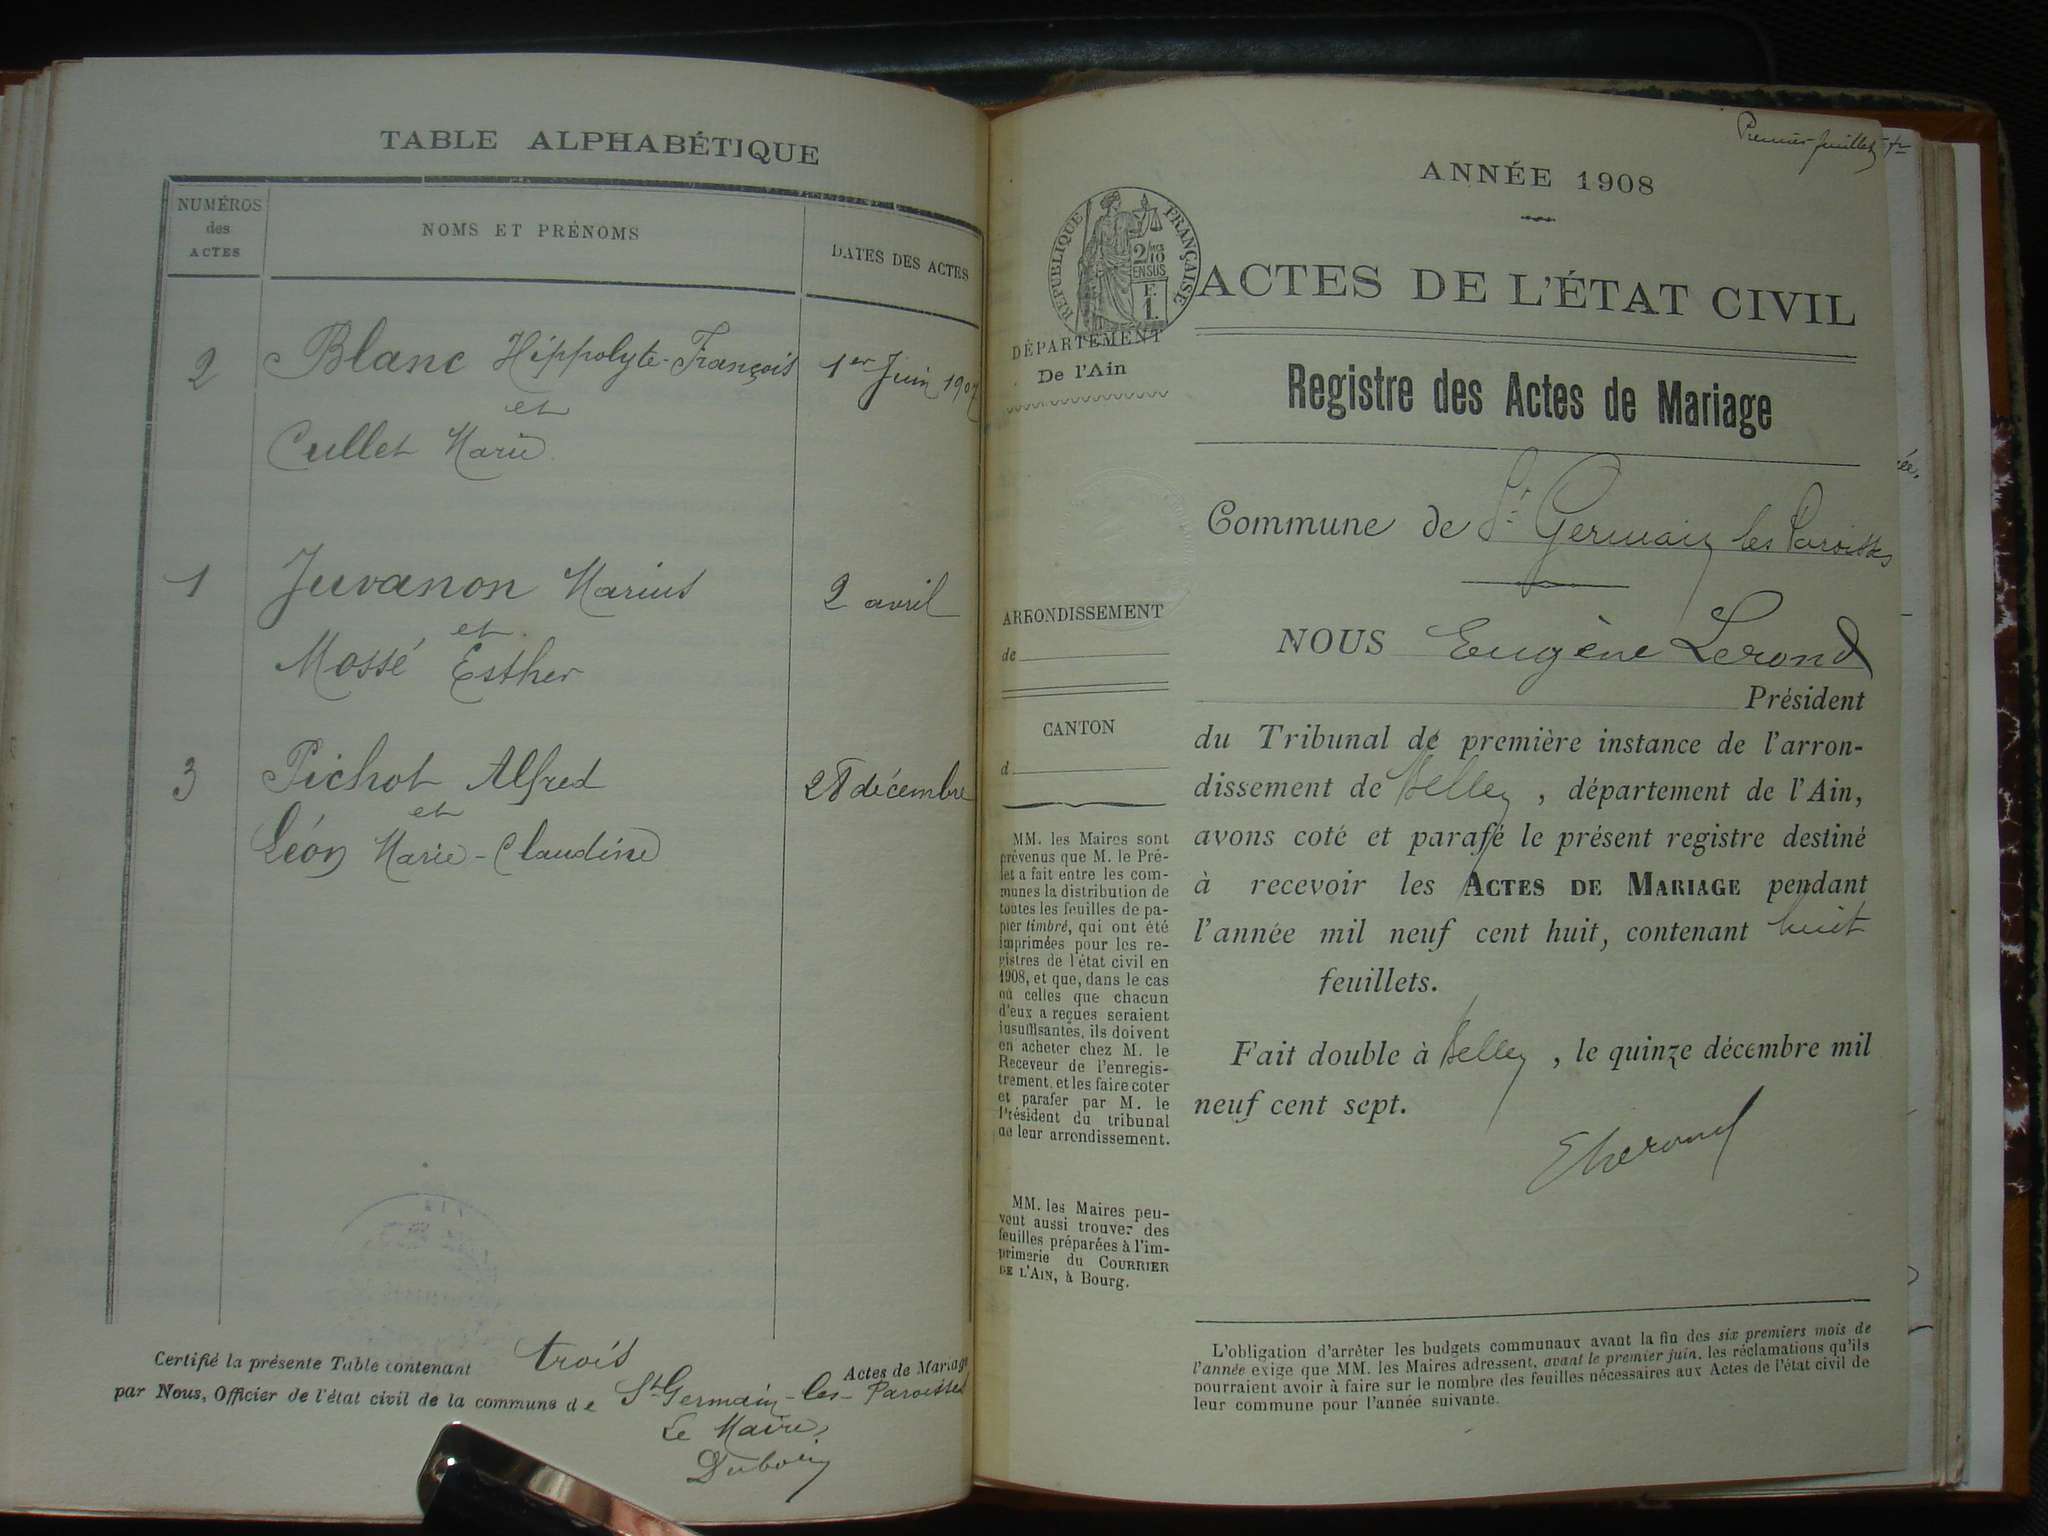 TABLE ALPHABÉTIQUE
NUMÉROS
des
ACTES
NOMS ET PRÉNOMS
DATES DES ACTES
2 Blanc Hippolyte-François 1er Juin 1907
et
Cullet Marie
1 Juvanon Marius 2 avril
et
Mossé Esther
3 Pichot Alfred 28 décembre
et
Léon Marie-Claudine
Certifié la présente Table contenant trois Actes de Mariage
par Nous, Officier de l'état civil de la commune de St Germain-les-Paroisses
Le Maire,
Premier feuillet
ANNÉE 1908
RÉPUBLIQUE FRANÇAISE
2/10
EN SUS
F.
1.
ACTES DE L'ÉTAT CIVIL
DÉPARTEMENT
De l'Ain
Registre des Actes de Mariage
Commune de St Germain les Paroisses
ARRONDISSEMENT
de
CANTON
d
MM. les Maires sont
prévenus que M. le Pré-
fet a fait entre les com-
munes la distribution de
toutes les feuilles de pa-
pier timbré, qui ont été
imprimées pour les re-
gistres de l'état civil en
1908, et que, dans le cas
où celles que chacun
d'eux a reçues seraient
insuffisantes, ils doivent
en acheter chez M. le
Receveur de l'enregis-
trement, et les faire coter
et parafer par M. le
Président du tribunal
de leur arrondissement.
MM. les Maires peu-
vent aussi trouver des
feuilles préparées à l'im-
primerie du COURRIER
DE L'AIN, à Bourg.
NOUS Eugène Lerond
Président
du Tribunal de première instance de l'arron-
dissement de Belley, département de l'Ain,
avons coté et parafé le présent registre destiné
à recevoir les ACTES DE MARIAGE pendant
l'année mil neuf cent huit, contenant huit
feuillets.
Fait double à Belley, le quinze décembre mil
neuf cent sept.
ELerond
L'obligation d'arrêter les budgets communaux avant la fin des six premiers mois de
l'année exige que MM. les Maires adressent, avant le premier juin, les réclamations qu'ils
pourraient avoir à faire sur le nombre des feuilles nécessaires aux Actes de l'état civil de
leur commune pour l'année suivante.